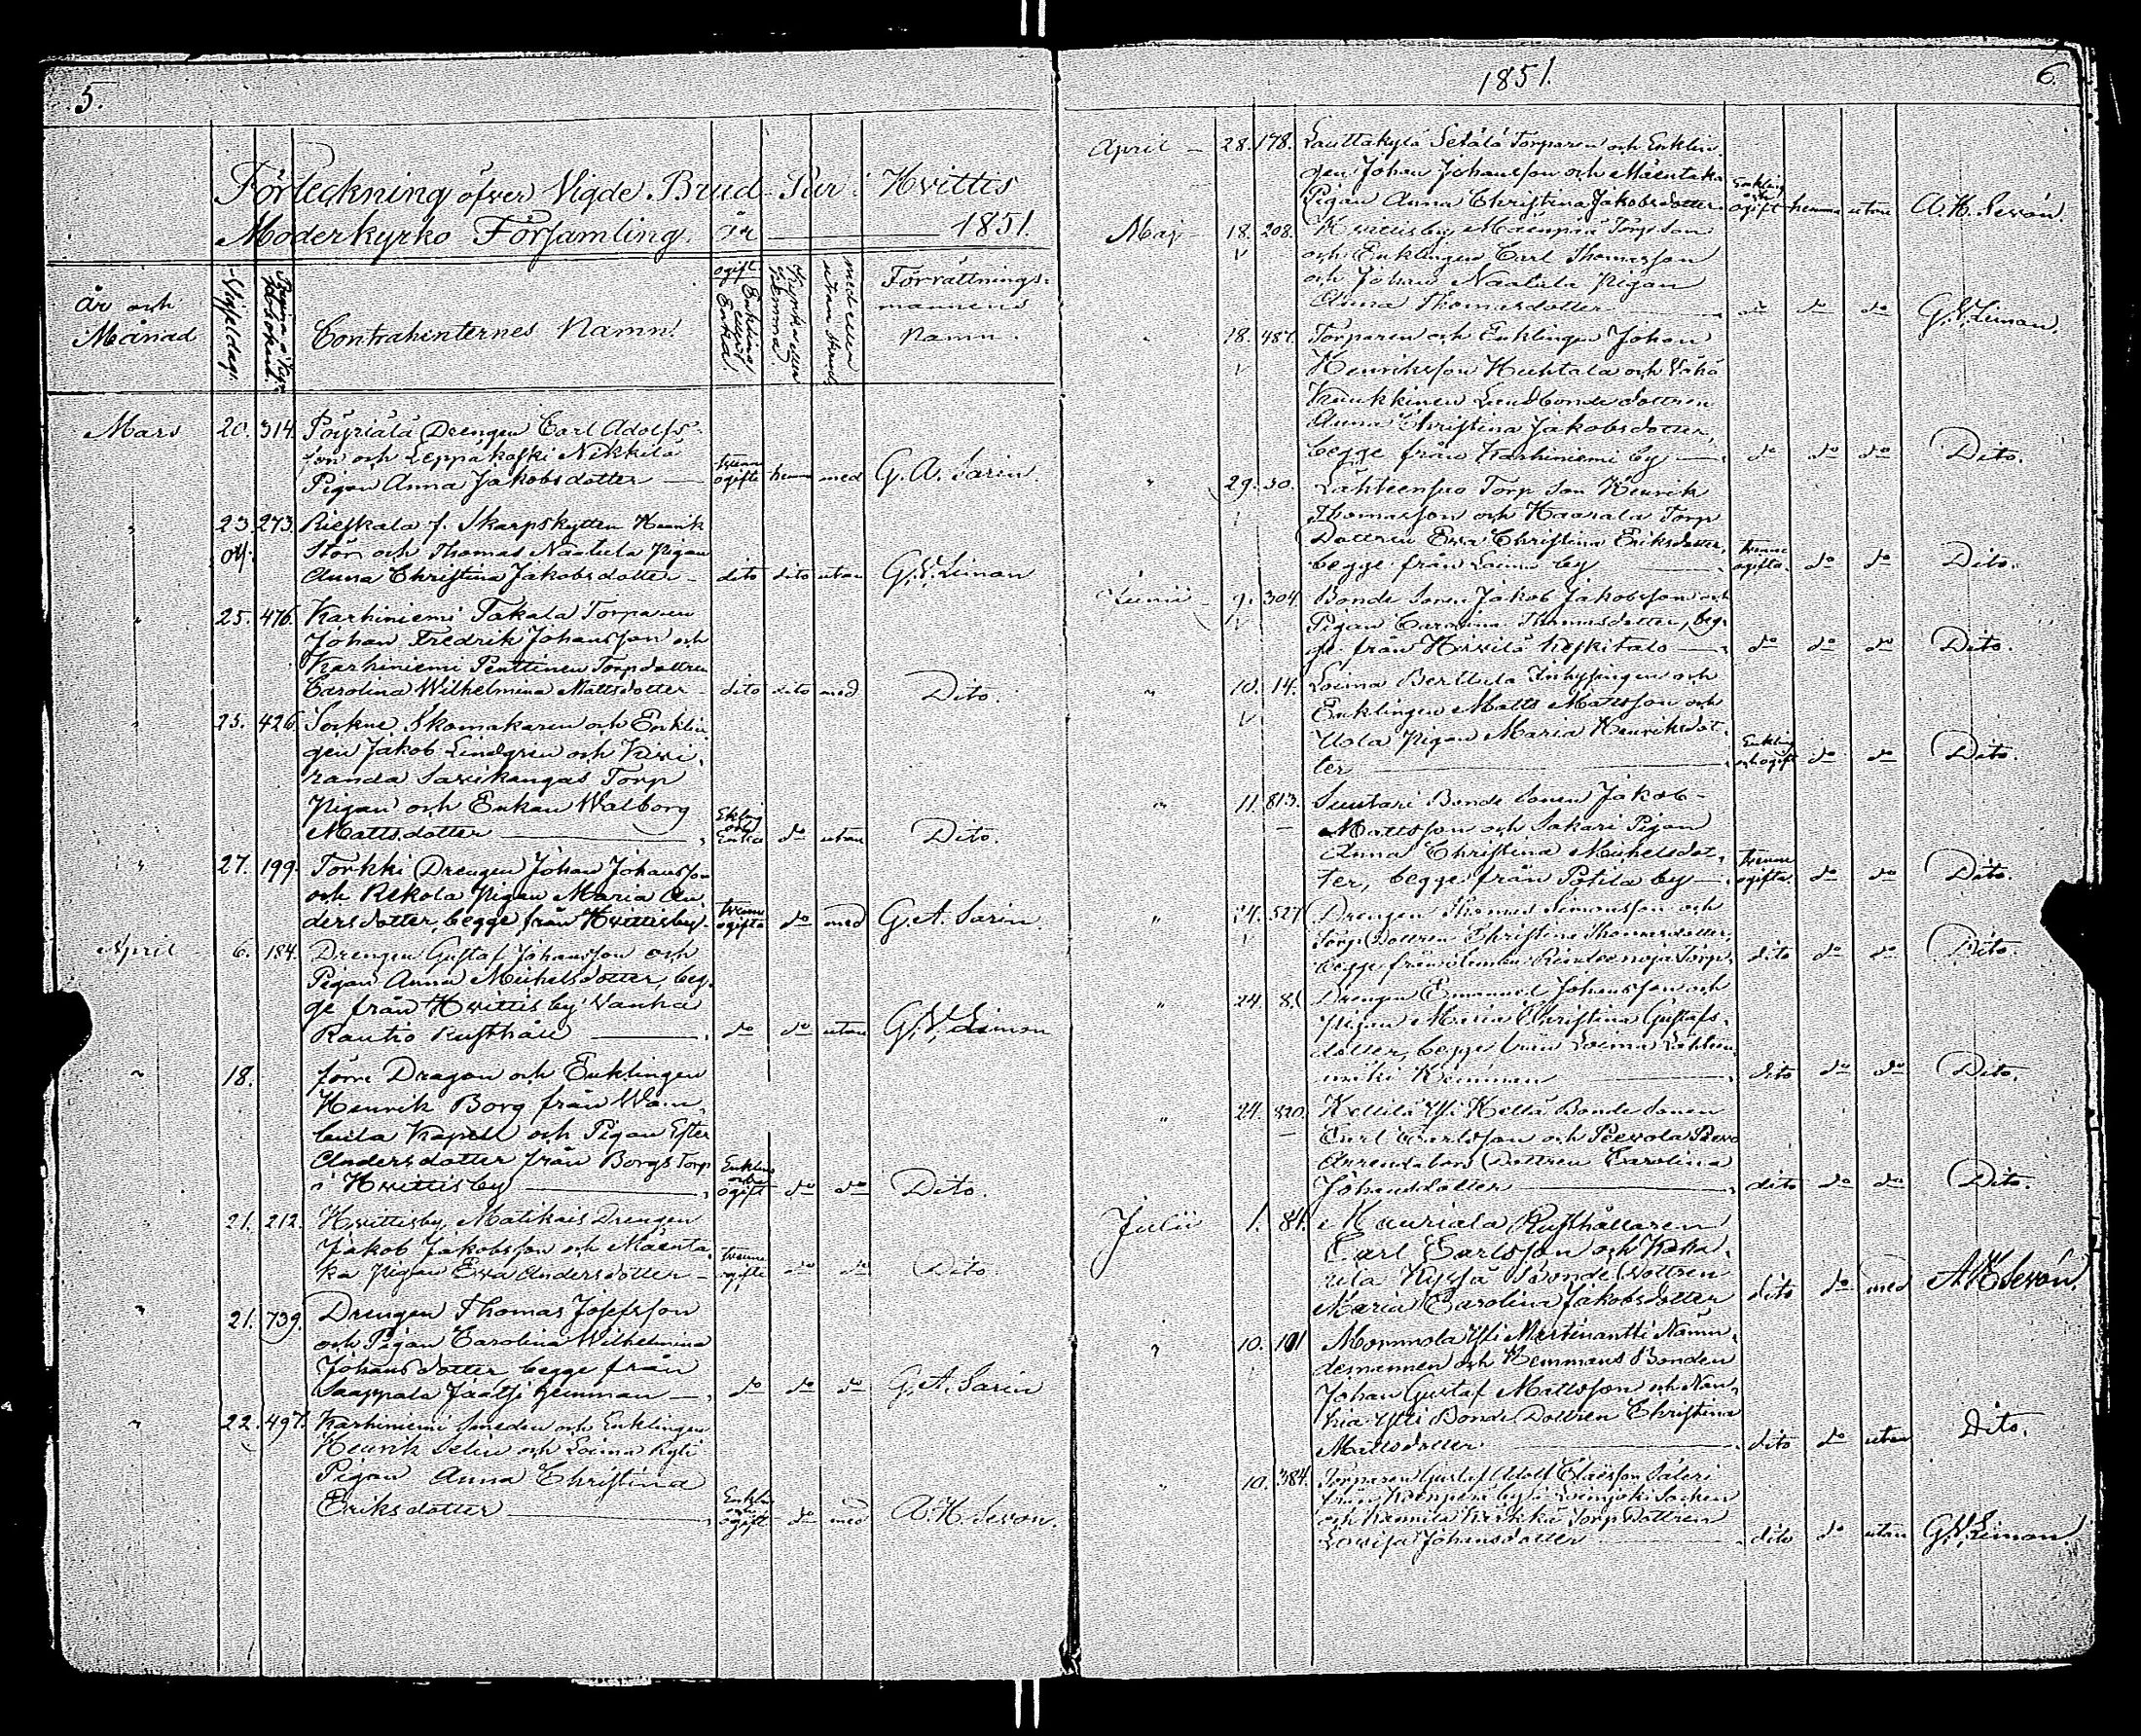 5.
Förteckning öfver Vigde Brud-Par i Hvittis
Moderkyrko Församling. År 1851.
År och Månad
Vigseldag.
Contrahenternes Namn.
ogift Enkling eller Enka.
Kyrkan eller hemma.
med eller utan
Förrättnings-
mannens
Namn.
Mars 20. 314. Pöyriälä Drengen Carl Adolfs-
son och Leppäkoski Nikkilä
Pigan Anna Jakobsdotter — ogifte hem med G. A. Sarin.
" 23. 273. Rieskala f. Skarpskytten Henrik
Stör och Thomas Naatula Pigan
Anna Christina Jakobsdotter — dito dito utan G. V. Liman
" 25. 476. Karhiniemi Takala Torparen
Johan Fredrik Johansson och
Karhiniemi Penttinen Torpdottren
Carolina Wilhelmina Mattsdotter — dito dito med Dito.
" 25. 426. Sockne Skomakaren och Enklin-
gen Jakob Lindgren och Kari-
randa Savikangas Torp
Pigan och Enkan Walborg
Mattsdotter — do utan Dito.
" 27. 199. Torkki Drengen Johan Johansson
och Rekola Pigan Maria An-
dersdotter, begge från Hvittisby. ogifta do med G. A. Sarin.
April 6. 184. Drengen Gustaf Johansson och
Pigan Anna Michelsdotter, beg-
ge från Hvittisby Vanha
Rautio Rusthåll — do do utan G. V. Liman
" 18. förre Dragon och Enklingen
Henrik Borg från Wam-
bula Kapell och Pigan Ester
Andersdotter från Borgs Torp
i Hvittisby — Enkling ogift do do Dito.
" 21. 212. Hvittisby, Matikais Drengen
Jakob Jakobsson och Mäenta-
ka Pigan Eva Andersdotter — ogifte do do Dito.
" 21. 739. Drengen Thomas Josefsson
och Pigan Carolina Wilhelmina
Johansdotter begge från
Sayppala Jaatsi hemman — do do do G. A. Sarin
" 22. 497. Karhiniemi Smeden och Enklingen
Henrik Selin och Loima Kyti
Pigan Anna Christina
Eriksdotter — ogift do med A. H. Sevon.
1851.
6.
April — 28. 178. Lauttakylä Setälä Torparen och Enklin-
gen Johan Johansson och Mäentaka
Pigan Anna Christina Jakobsdotter. Enkling och ogift hemma utan A. H. Sevón.
Maj — 18. 208. Hvittisby Mäenpää Torp Son
och Enklingen Carl Thomasson
och Johan Naatula Pigan
Anna Thomasdotter — do do do G. V. Liman.
" 18. 487. Torparen och Enklingen Johan
Henriksson Huhtala och Vähä
Kuukkinen Landbonde dottren
Anna Christina Jakobsdotter,
begge från Karhiniemi by — do do do Dito.
" 29. 30. Lähteensuo Torp Son Henrik
Thomasson och Haarala Torp
Dottren Eva Christina Eriksdotter,
begge från Loima by — ogifta. do do Dito.
Junii 9. 304. Bonde Sonen Jakob Jakobsson och
Pigan Carolina Thomasdotter, beg-
ge från Hirvilä Keskitalo — do do do Dito.
" 10. 14. Loima Berttula Inhysingen och
Enklingen Matts Mattsson och
Uola Pigan Maria Henriksdot-
ter — Enkling och ogift do do Dito.
" 11. 813. Suutari Bonde Sonen Jakob
Mattsson och Sakari Pigan
Anna Christina Michelsdot-
ter, begge från Potila by — ogifte. do do Dito.
" 24. 527. Drengen Thomas Simonsson och
Torp Dottren Christina Thomasdotter,
begge från Torp, dito do do Dito.
" 24. 8. Drengen Emanuel Johansson och
Pigan Maria Christina Gustafs-
dotter, begge från Loima Lähteen-
mäki Hemman — dito do do Dito.
" 24. 820. Keltilä Yli Kellä Bonde Sonen
Carl Carlsson och Peevola
Arrendators Dottren Carolina
Johansdotter — dito do do Dito.
Julii 1. 84. Mauriala Rusthållaren
Carl Carlsson och Kaha-
rila Kyssä Bonde Dottren
Maria Carolina Jakobsdotter dito do med A. H. Sevón.
" 10. 101 Mommola Yli Martinantti Nämn-
demannen och Hemmans Bonden
Johan Gustaf Mattsson och Nan-
hia Ylli Bonde Dottren Christina
Mattsdotter — dito do utan Dito.
" 10. 384. Torparen Gustaf Adolf Claësson Säteri
från by i Loimijoki Socken
och Torp Dottren
Lovisa Johansdotter — dito do utan G. V. Liman.